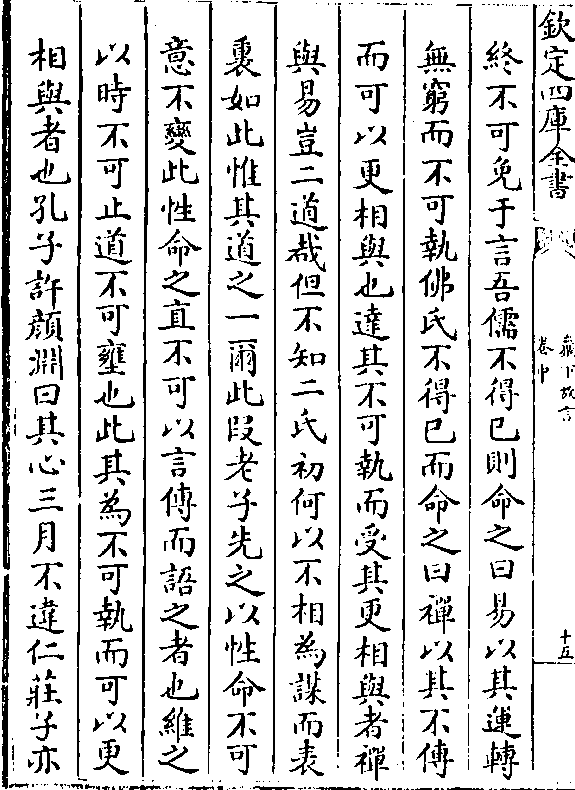 欽定四庫全書
巖下放言
卷中
十五
終不可免于言吾儒不得已則命之曰易以其運轉
無窮而不可執佛氏不得已而命之曰禪以其不傳
而可以更相與也達其不可執而受其更相與者禪
與易豈二道哉但不知二氏初何以不相為謀而表
裏如此惟其道之一爾此段老子先之以性命不可
意不變此性命之直不可以言傳而語之者也維之
以時不可止道不可壅也此其為不可執而可以更
相與者也孔子許顔淵曰其心三月不違仁莊子亦